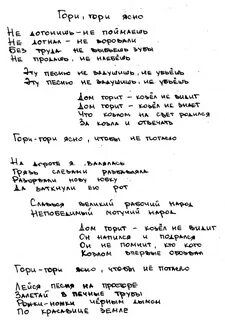 Гори, гори ясно
Не догонишь - не поймаешь
Не догнал - не воровали
Без труда не выбьешь зубы
Не продашь, не наебёшь
Эту песню не задушишь, не убьёшь
Эту песню не задушишь, не убьёшь
Дом горит - козёл не видит
Дом горит - козёл не знает
Что козлом на свет родился
За козла и отвечать
Гори-гори ясно, чтобы не погасло
На дороге я валялась
Грязь слезами разбавляла
Разорвали нову юбку
Да заткнули ею рот
Славься великий рабочий народ
Непобедимый могучий народ
Дом горит - козёл не видит
Он напился и подрался
Он не помнит, кто кого
Козлом впервые обозвал
Гори-гори ясно, чтобы не погасло
Лейся песня на просторе
Залетай в печные трубы
Рожки-ножки чёрным дымом
По красавице Земле